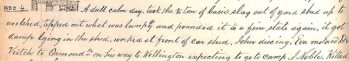 Wed 4. A dull calm day, took the ½ ton of basic slag out of yard shed up to
woolshed, tipped out what was lumpy and pounded it to a fine state again, it got
damp lying in the shed, worked at front of car shed, John discing, Eva motored Dr
Veitch to Ormond on his way to Wellington expecting to go to camp, J. Noble, Killed